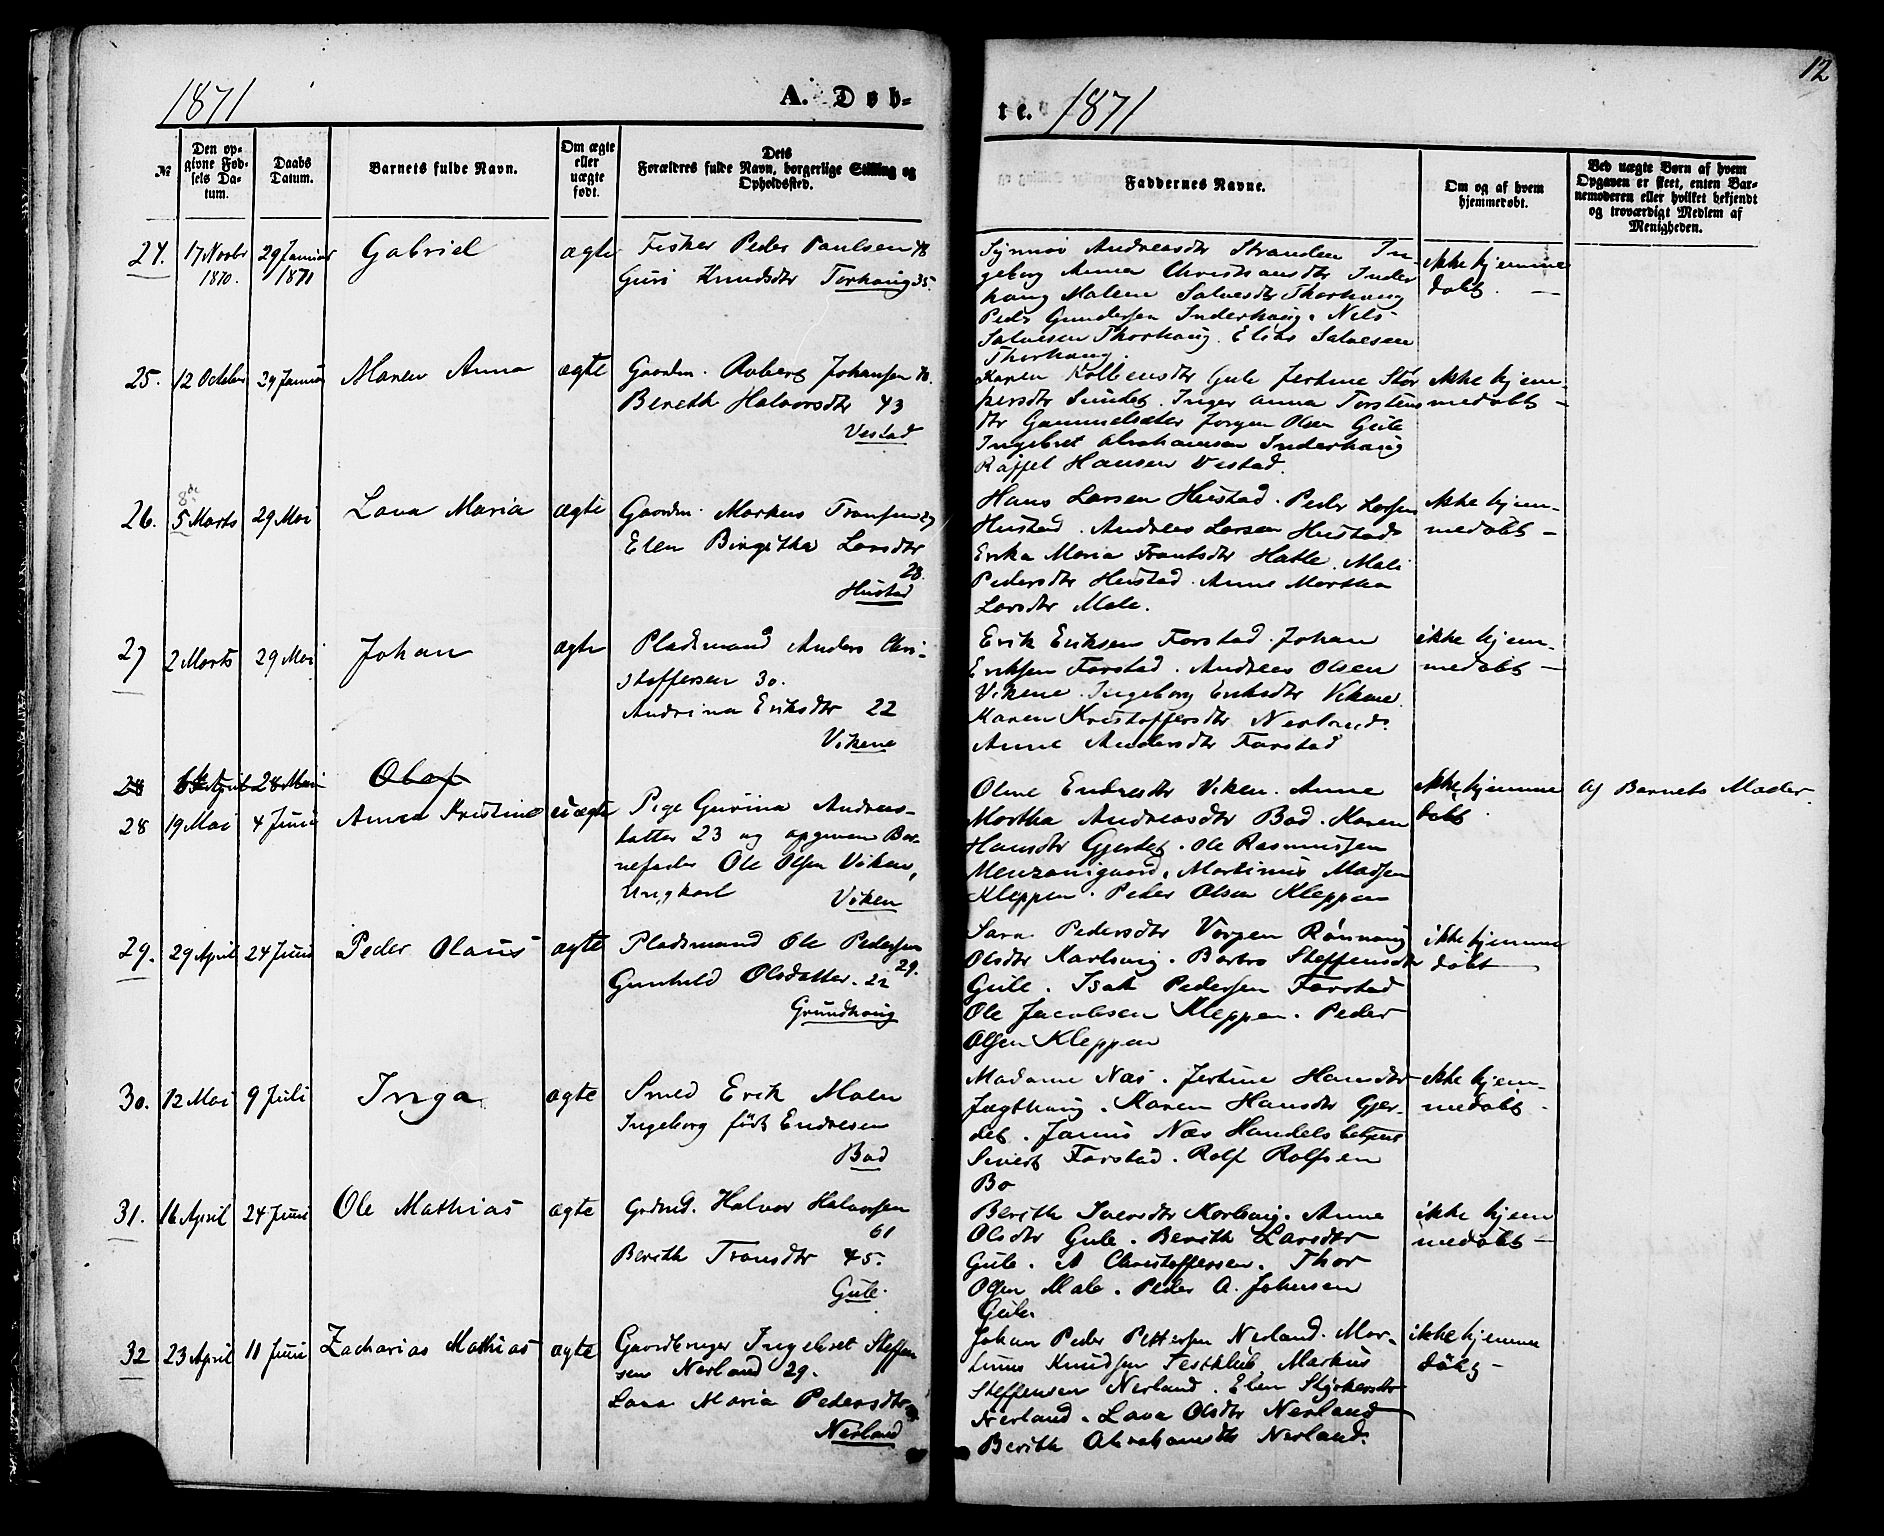 12
1871
A. Døb-
te. 1871
№
Den op-
givne Fød-
sels Da-
tum.
Daabs
Datum.
Barnets fulde Navn.
Om ægte
eller
uægte
født.
Dets
Forældres fulde Navn, borgerlige Stilling og
Opholdssted.
Faddernes Navne.
Om og af hvem
hjemmedøbt.
Ved uægte Børn af hvem
Opgaven er skeet, enten Bar-
nemoderen eller hvilket bekjendt
og troværdigt Medlem af
Menigheden.
24. 17 Novbr 1870. 29 Januar 1871 Gabriel ægte
Fisker Peder Paulsen 48
Guri Knudsdtr Torhaug 35.
Synnøv Andreasdtr Stranden In-
geborg Anna Christiansdtr Inder
haug Malene Salvesdtr Thorhaug
Peder Gundersen Inderhaug. Nels
Salvesen Thorhaug. Elias Salvesen
Thorhaug.
ikke hjemme
døbt. —
25. 12 October 29 Januar Maren Anna ægte
Gaardm. Robert Johansen
Bereth Halvorsdtr 43
Vestad
Karen Kolbensdtr Gule Jertine
persdtr Sundet. Inger Anna Torstens
dtr Gammelsæter Jørgen Olsen Gule
Ingebret Abrahamsen Inderhaug
Hansen Vestad.
ikke hjem-
medøbt —
26. 8de 5 Marts 29 Mai Lava Maria ægte
Gaardm. Markus Fransen 27
Elen Birgitha Larsdtr
28.
Hustad
Hans Larsen Hustad. Peder Larsen
Hustad. Andreas Larsen Hustad
Erika Maria Frantsdtr Hatle. Mali
Pedersdtr Hustad. Anne Martha
Larsdtr Male.
ikke hjem-
medøbt —
27 2 Marts 29 Mai Johan ægte
Pladsmand Anders Chri-
stoffersen 30.
Andrina Eriksdtr 22
Vikene
Erik Eriksen Farstad. Johan
Eriksen Farstad. Andreas Olsen
Vikene. Ingeborg Eriksdtr Vikene.
Karen Kristoffersdtr
Anne Andersdtr Farstad
ikke hjem-
medøbt —
28 April 28 Mai Olaf
28 19 Mai 4 Juni Anna Kristine uægte
Pige Gurina Andreas-
datter 23 og opgiven Bar-
nefader Ole Olsen Viken,
Ungkarl Viken
Oline Endresdtr Viken. Anne
Martha Andreasdtr Bad. Karen
Hansdtr Gjerdet. Ole Rasmussen
Mortinus Madsen
Kleppen. Peder Olsen Kleppen
ikke hjemme
døbt.
Af Barnets Moder.
29. 29 April 24 Juni Peder Olaus ægte
Pladsmand Ole Pedersen
29.
Gunhild Olsdatter. 22
Grundhaug
Sara Pedersdtr Vorpen Rønnaug
Olsdtr Karlsvig. Barbro Steffensdtr
Gule. Isak Pedersen Farstad
Ole Jacobsen Kleppen. Peder
Olsen Kleppen
ikke hjemme
døbt —
30. 12 Mai 9 Juli Inga ægte
Smed Erik Malen
Ingeborg født Endresen
Bad
Madame Næs. Jertine Hansdtr
Jægthaug. Karen Hansdtr Gjer-
det. Janus Næs Handelsbetjent
Sivert Farstad. Rolf Rolfsen
Bo
ikke hjem-
medøbt -
31. 16 April 24 Juni Ole Mathias ægte
Grdmd. Halvor Halvorsen
61
Berith Transdtr 45.
Gule.
Berith Iversdtr Karlsvig. Anne
Olsdtr Gule. Berith Larsdtr
Gule. A Christoffersen. Thor
Olsen Male. Peder A. Johnsen
Gule.
ikke hjem
medøbt —
32 23 April 11 Juni Zacharias Mathias ægte
Gaardbruger Ingebret Steffen
sen Nerland 29.
Lava Maria Pedersdtr
Nerland
Johan Peder Pettersen Nerland. Mar-
tinus Knudsen Markus
Steffensen Nerland. Elen Styrkersdtr
Nerland. Lava Olsdtr Nerland
Berith Abrahamsdtr Nerland.
ikke hjemme
døbt —